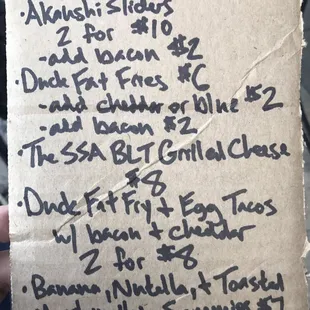 · Akaushi Sliders
2 for $10
- add bacon $2
· Duck Fat Fries $6
- add cheddar or blue $2
- add bacon $2
· The SSA BLT Grilled Cheese
$8
· Duck Fat Fry + Egg Tacos
w/ bacon + cheddar
2 for $8
· Banana, Nutella, + Toasted
$7